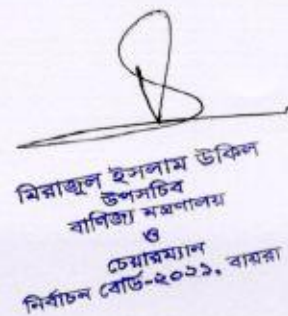 মিরাজুল ইসলাম উকিল
উপসচিব
বাণিজ্য মন্ত্রণালয়
ও
চেয়ারম্যান
নির্বাচন বোর্ড-২০২১, বায়রা